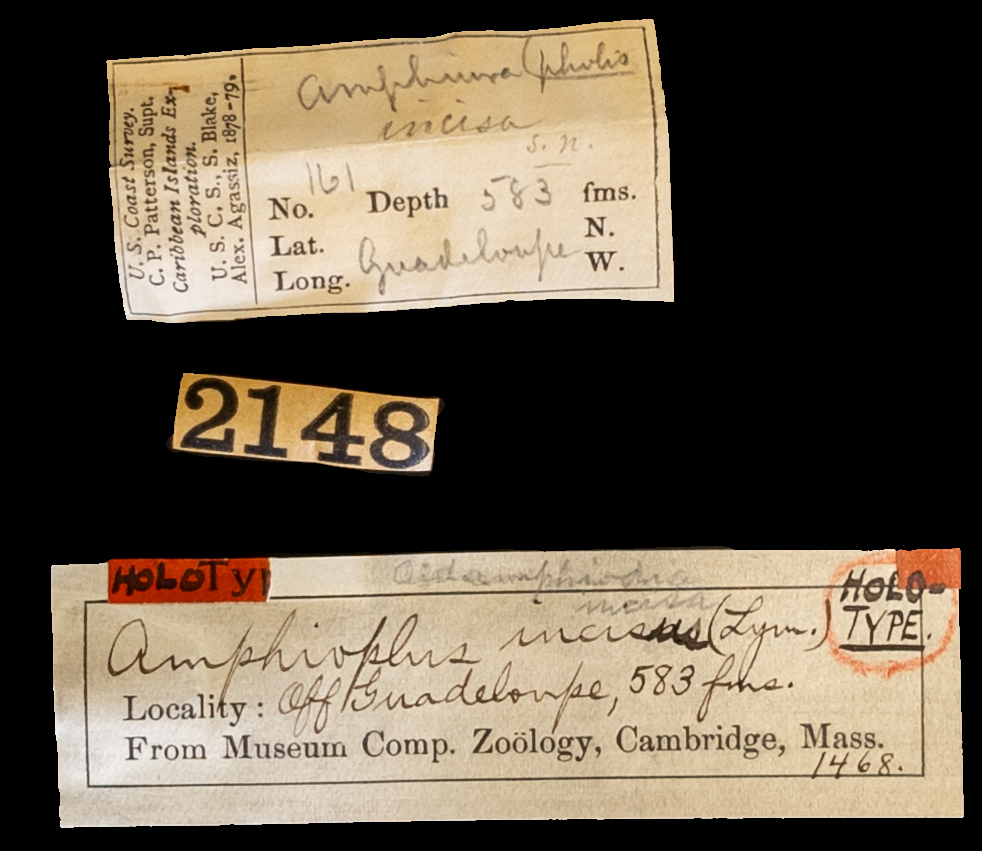 U. S. Coast Survey.
C. P. Patterson, Supt.
Caribbean Islands Ex-
ploration.
U. S. C. S., S. Blake,
Alex. Agassiz, 1878-79.
Amphiura (pholis
incisa
s. n.
No. 161 Depth 583 fms.
Lat. N.
Long. Guadeloupe W.
2148
HOLOTyp
incisa
HOLO-
TYPE.
Amphioplus incisus (Lym.)
Locality: Off Guadeloupe, 583 fms.
From Museum Comp. Zoölogy, Cambridge, Mass.
1468.